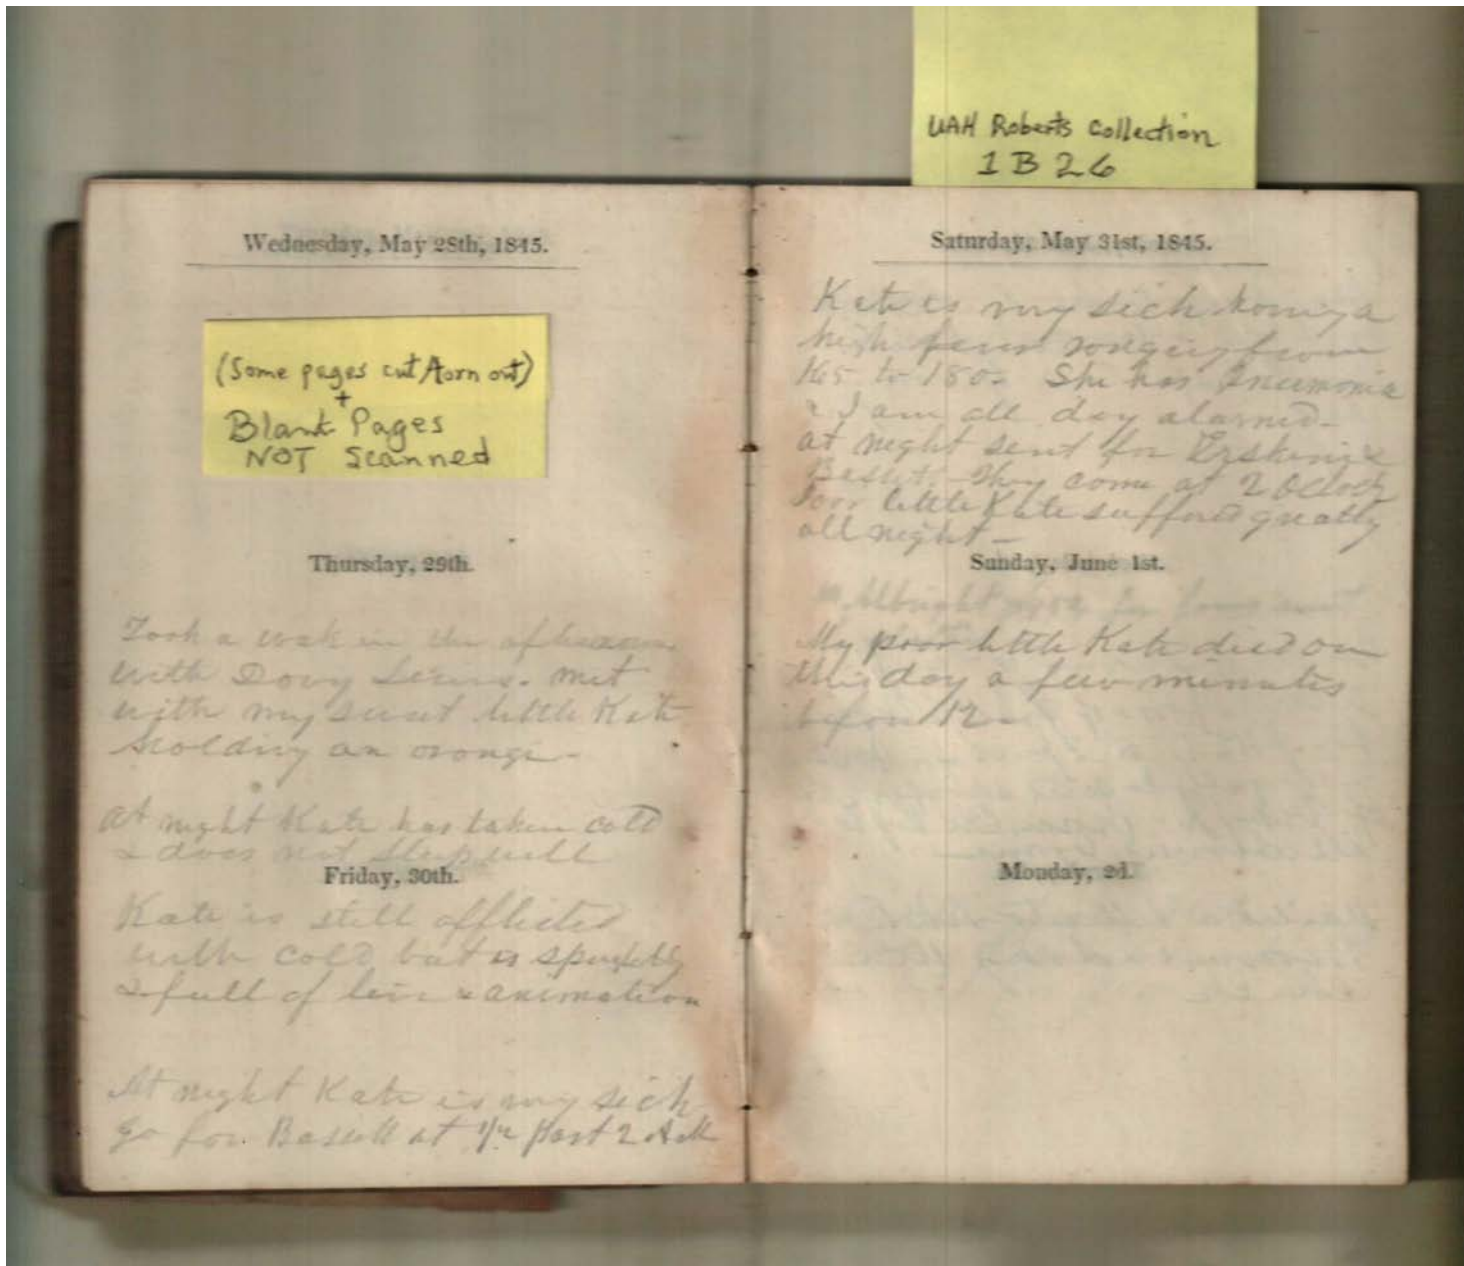 UAH Roberts Collection
1B26
Wednesday, May 28th, 1845.
(Some pages cut/torn out)
+
Blank Pages
NOT Scanned
Thursday, 29th.
Took a walk in the afternoon
with Dovy Lewis. Met
with my sweet little Kate
holding an orange -
At night Kate has taken cold
& does not sleep well
Friday, 30th.
Kate is still afflicted
with cold but is sprightly
& full of life & animation
At night Kate is very sick
go for Bassett at 1/2 past 2
Saturday, May 31st, 1845.
Kate is very sick having a
high fever ranging from
165 to 180. She has Pneumonia
& I am all day alarmed -
at night sent for Erskine &
Bassett. They come at 2 Oclock
Poor little Kate suffered greatly
all night -
Sunday, June 1st.
My poor little Kate died on
this day a few minutes
before 12 -
Monday, 2d.